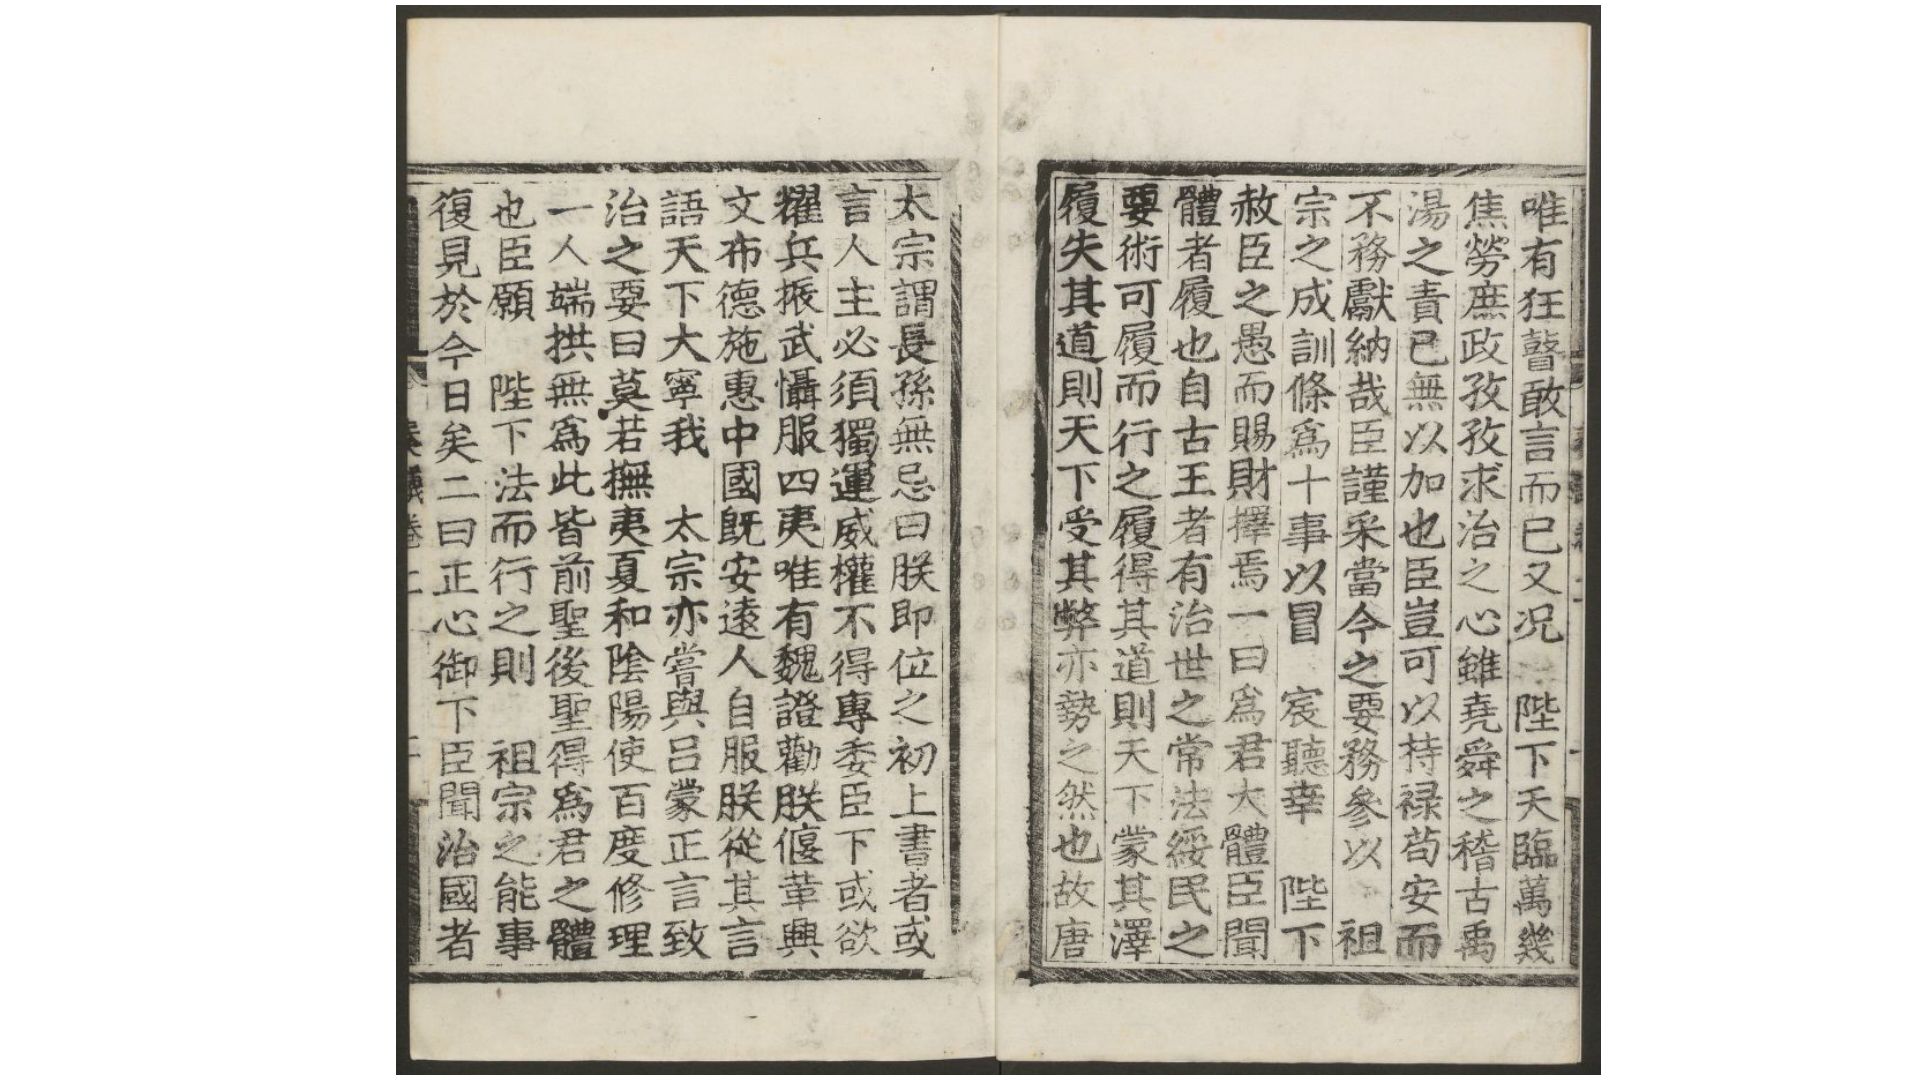 唯有狂瞽敢言而已又况 陛下天臨萬幾
焦勞庶政孜孜求治之心雖堯舜之稽古禹
湯之責已無以加也臣豈可以持禄苟安而
不務獻納哉臣謹采當今之要務參以 祖
宗之成訓條爲十事以冒 宸聽幸 陛下
赦臣之愚而賜財擇焉一曰爲君大體臣聞
體者履也自古王者有治世之常法綏民之
要術可履而行之履得其道則天下蒙其澤
履失其道則天下受其弊亦勢之然也故唐
太宗謂長孫無忌曰朕即位之初上書者或
言人主必須獨運威權不得專委臣下或欲
耀兵振武懾服四夷唯有魏證勸朕偃革興
文布德施惠中國既安遠人自服朕從其言
語天下大寧我 太宗亦嘗與吕蒙正言致
治之要曰莫若撫夷夏和陰陽使百度修理
一人端拱無爲此皆前聖後聖得爲君之體
也臣願 陛下法而行之則 祖宗之能事
復見於今日矣二曰正心御下臣聞治國者
奏議卷二